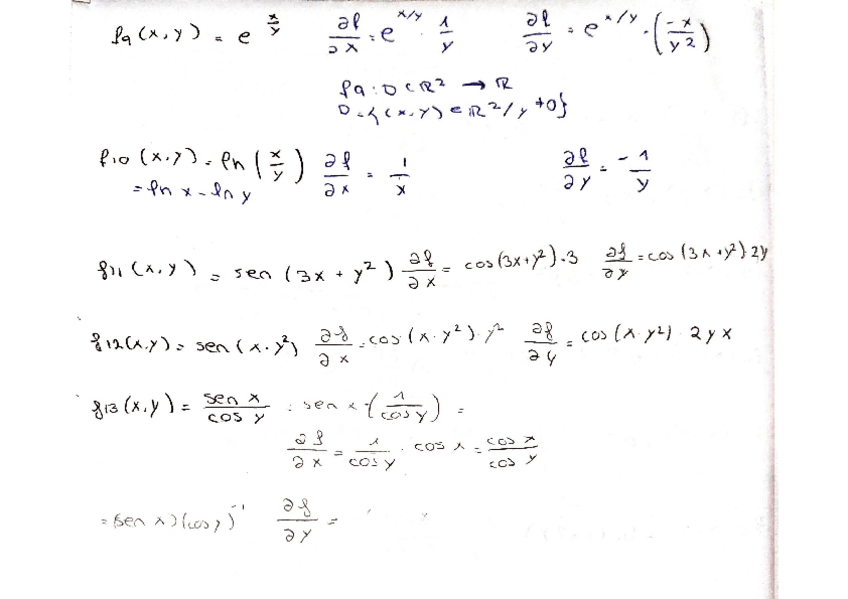 f9(x,y) = e^(x/y)   ∂f/∂x = e^(x/y) · 1/y   ∂f/∂y = e^(x/y) · (-x/y²)
f9: D ⊂ ℝ² → ℝ
D = {(x,y) ∈ ℝ² / y ≠ 0}
f10(x,y) = ln(x/y)   ∂f/∂x = 1/x   ∂f/∂y = -1/y
= ln x - ln y
f11(x,y) = sen(3x + y²)   ∂f/∂x = cos(3x+y²)·3   ∂f/∂y = cos(3x+y²)·2y
f12(x,y) = sen(x·y²)   ∂f/∂x = cos(x·y²)·y²   ∂f/∂y = cos(x·y²) · 2yx
f13(x,y) = sen x/cos y = sen x · (1/cos y) =
∂f/∂x = 1/cos y · cos x = cos x/cos y
= (sen x)(cos y)⁻¹   ∂f/∂y =